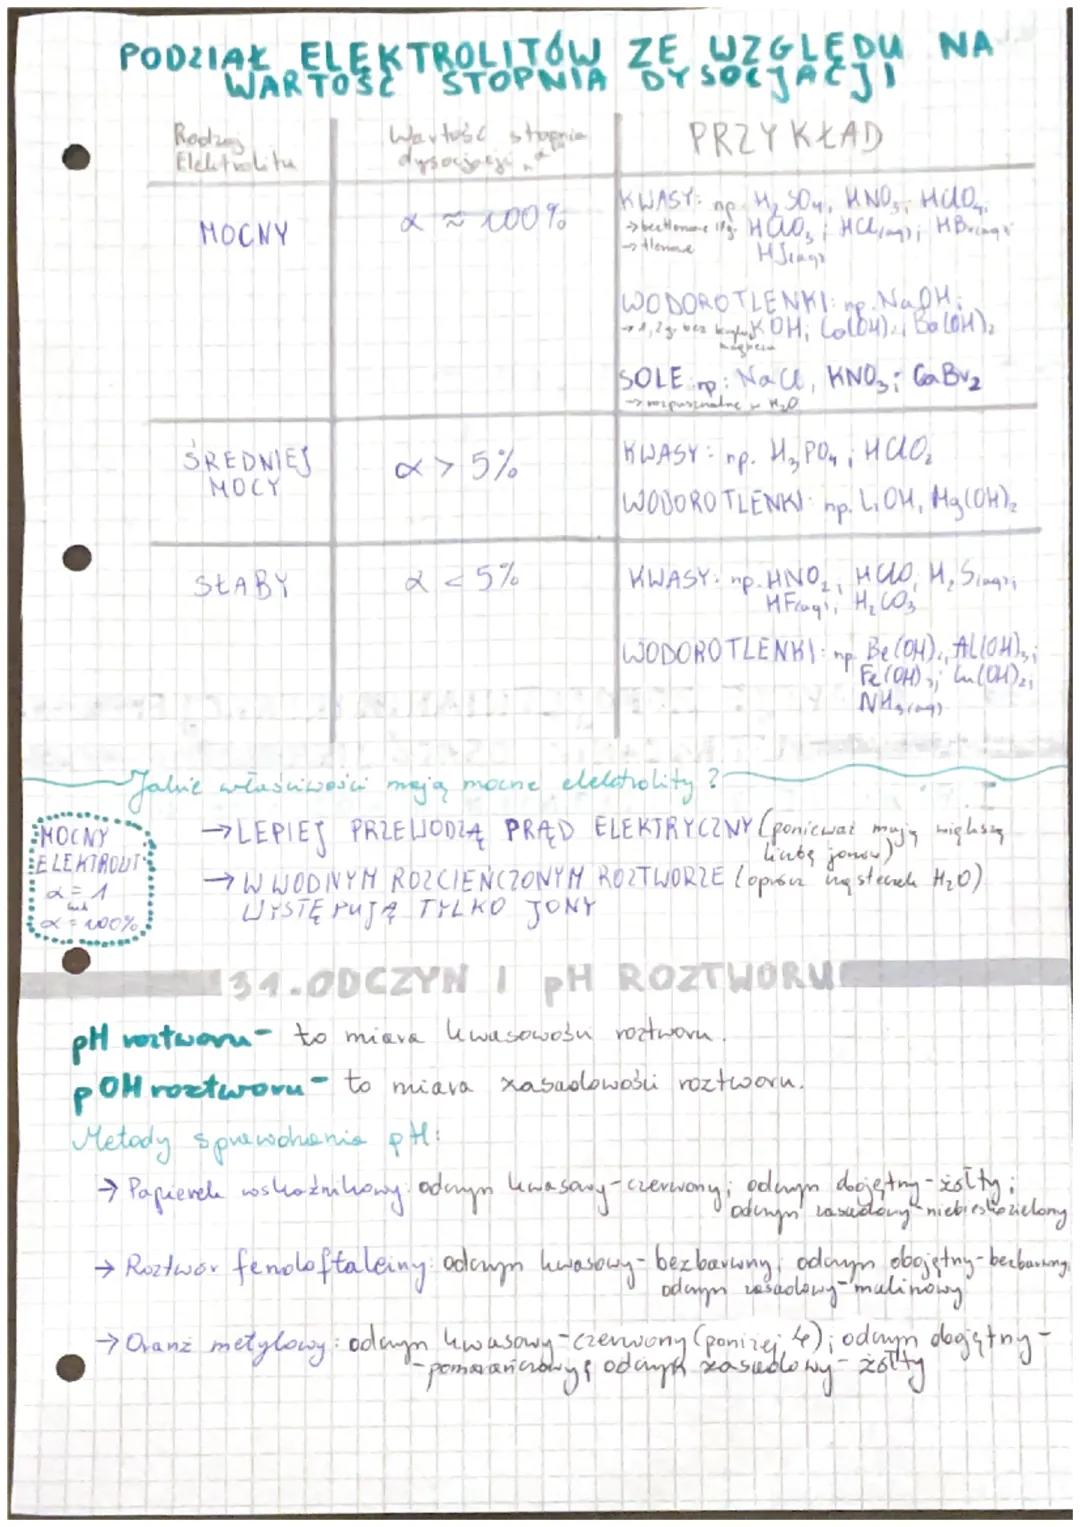 PODZIAŁ ELEKTROLITÓW ZE WZGLĘDU NA
WARTOŚĆ STOPNIA DYSOCJACJI
Rodzaj Elektrolitu
Wartość stopnia dysocjacji "α"
PRZYKŁAD
MOCNY
α ≈ 100%
KWASY: np. H₂SO₄, HNO₃, HClO₄,
→ beztlenowe 17g. HClO₃; HCl(aq); HBr(aq);
→ tlenowe HJ(aq)
WODOROTLENKI: np. NaOH;
→ 1,2g. bez KOH; Ca(OH)₂; Ba(OH)₂
magnezu
SOLE np: NaCl, KNO₃; CaBr₂
→ rozpuszczalne w H₂O
ŚREDNIEJ
MOCY
α > 5%
KWASY: np. H₃PO₄; HClO₂
WODOROTLENKI: np. LiOH, Mg(OH)₂
SŁABY
α < 5%
KWASY: np. HNO₂, HClO, H₂S(aq);
HF(aq), H₂CO₃
WODOROTLENKI: np. Be(OH)₂, Al(OH)₃;
Fe(OH)₃; Cu(OH)₂;
NH₃(aq)
Jakie właściwości mają mocne elektrolity?
MOCNY
ELEKTROLIT
α = 1
lub
α = 100%
→ LEPIEJ PRZEWODZĄ PRĄD ELEKTRYCZNY (ponieważ mają większą
liczbę jonów)
→ W WODNYM ROZCIEŃCZONYM ROZTWORZE (oprócz cząsteczek H₂O)
WYSTĘPUJĄ TYLKO JONY
31. ODCZYN I pH ROZTWORU
pH roztworu - to miara kwasowości roztworu.
pOH roztworu - to miara zasadowości roztworu.
Metody sprawdzania pH:
→ Papierek wskaźnikowy: odczyn kwasowy - czerwony; odczyn obojętny - żółty;
odczyn zasadowy - niebieskozielony
→ Roztwór fenoloftaleiny: odczyn kwasowy - bezbarwny; odczyn obojętny - bezbarwny,
odczyn zasadowy - malinowy
→ Oranż metylowy: odczyn kwasowy - czerwony (poniżej 4); odczyn obojętny -
- pomarańczowy; odczyn zasadowy - żółty